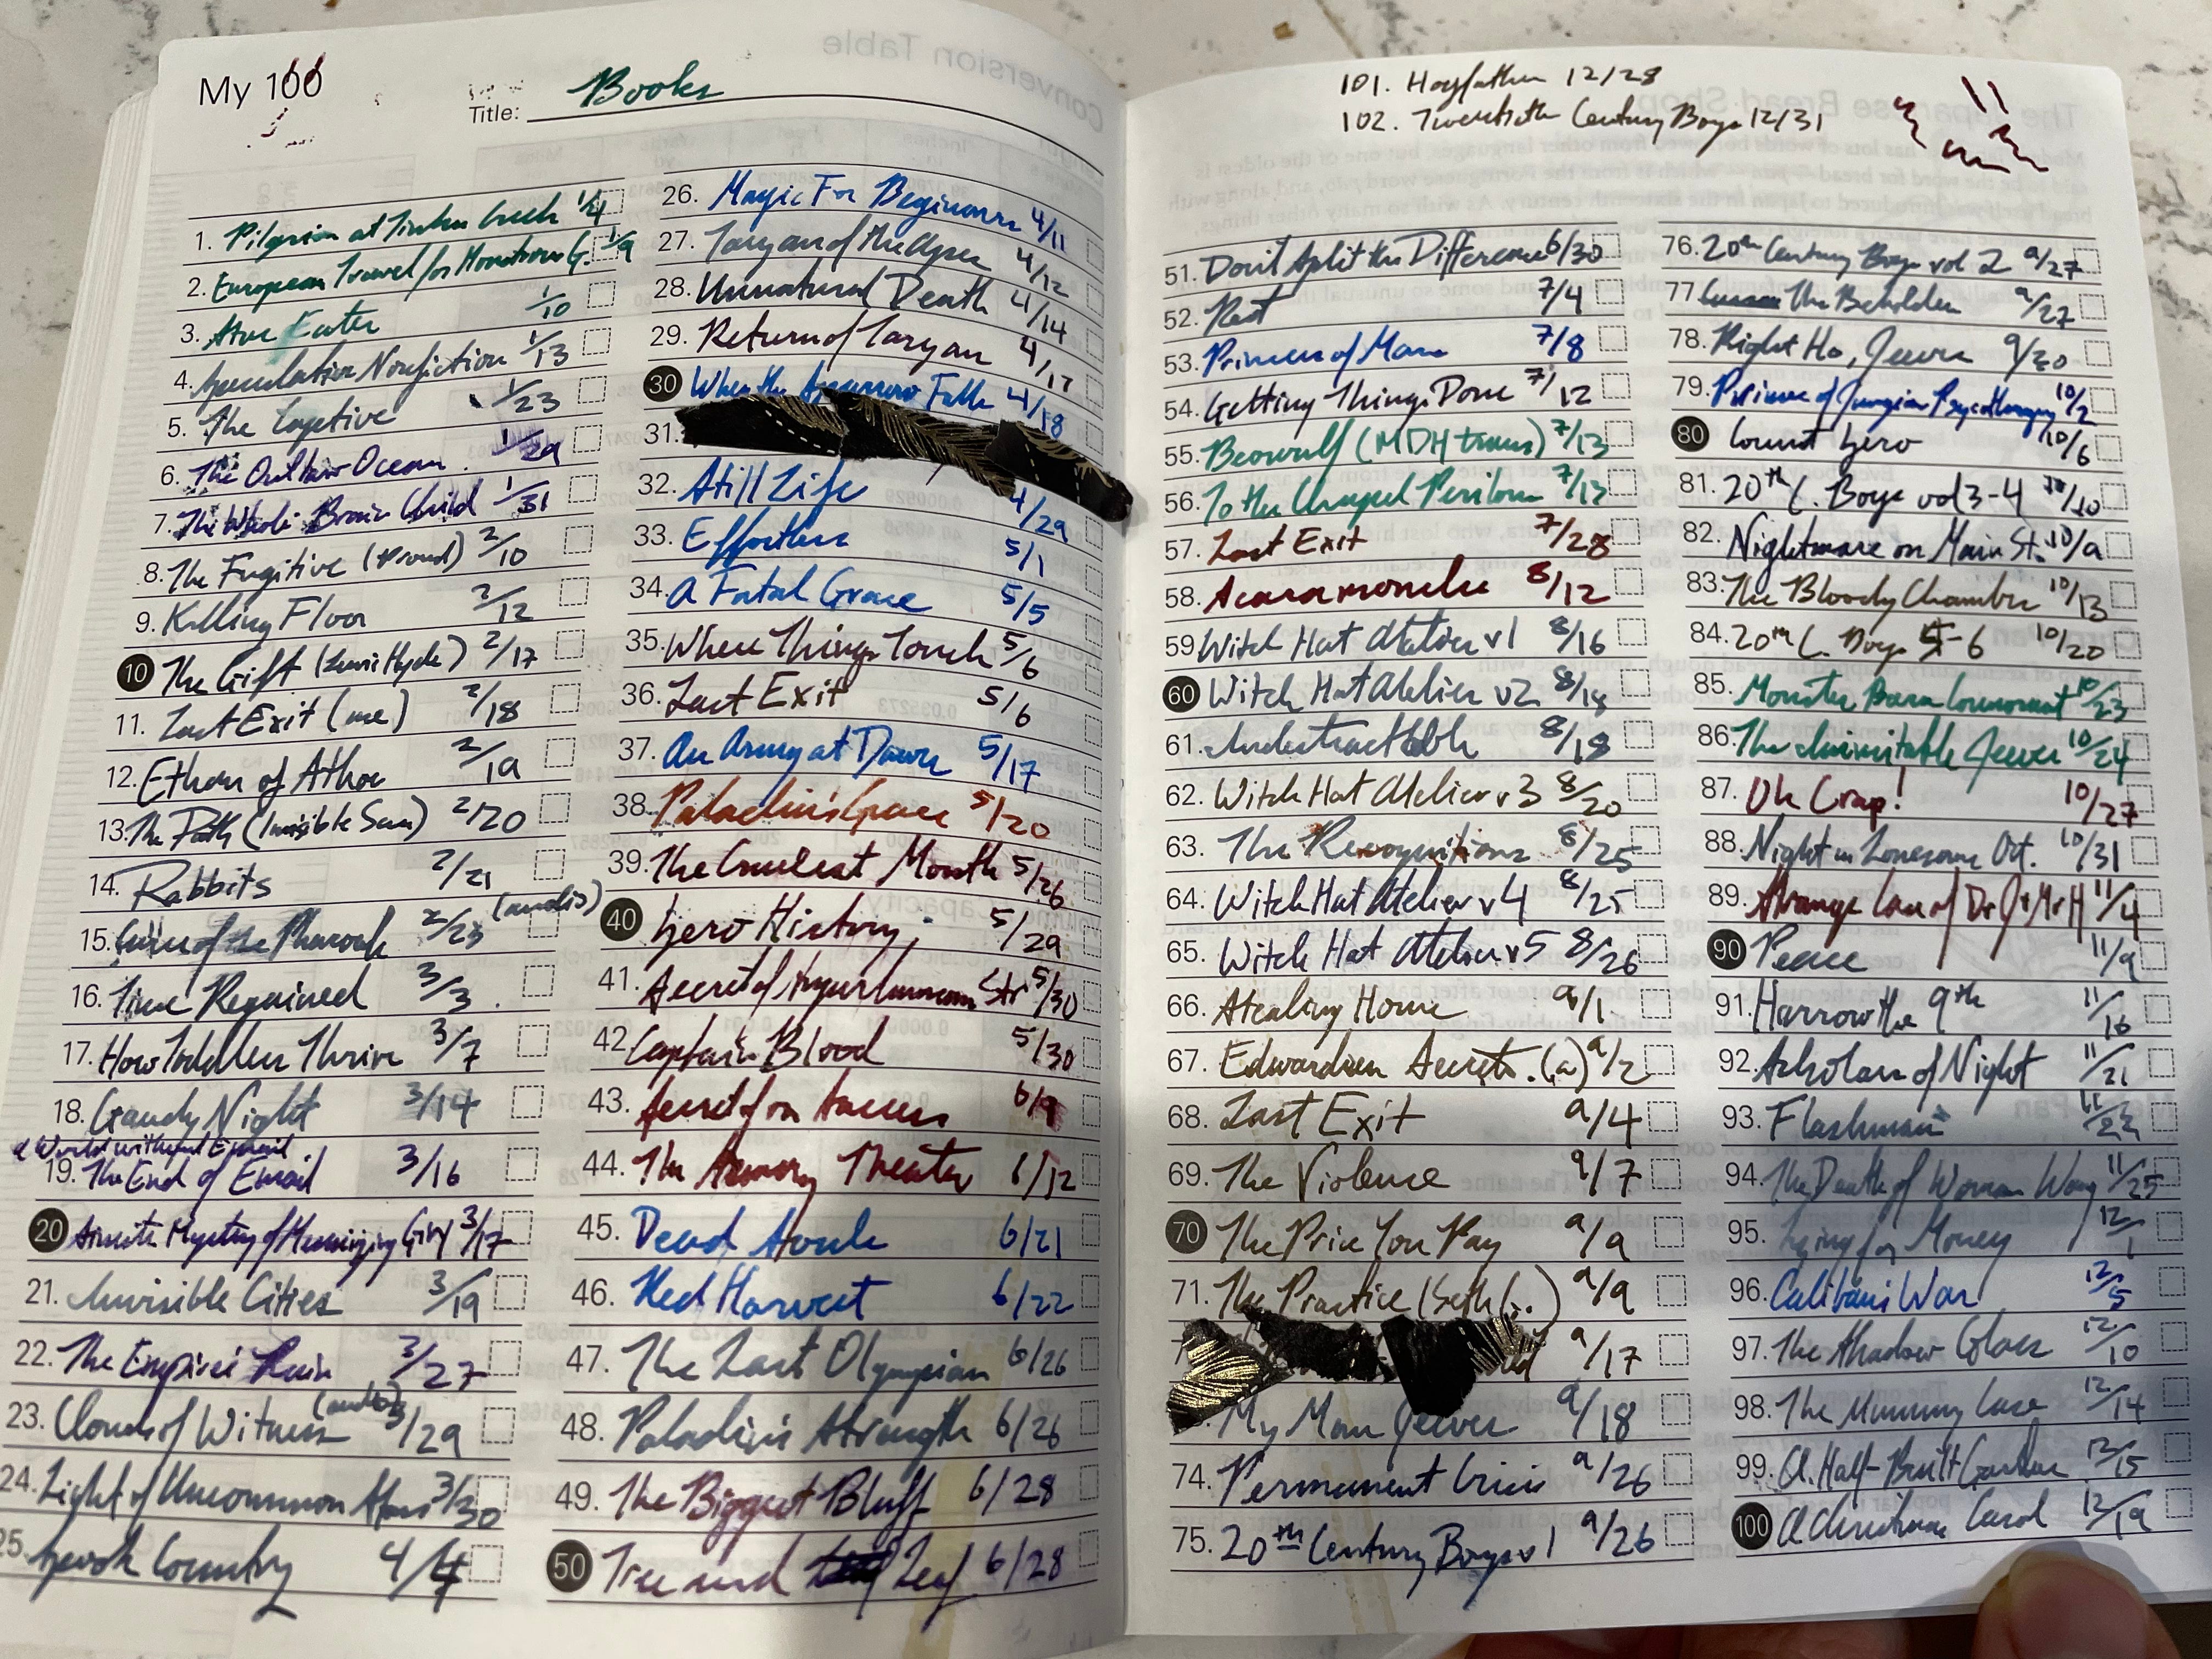 My 100
Title: Books
1. Pilgrim at Tinker Creek 1/4
2. European Travel for Monstrous G. 1/9
3. Star Eater 1/10
4. Speculative Nonfiction 1/13
5. The Captive 1/23
6. The Outlaw Ocean 1/29
7. The Whole Brain Child 1/31
8. The Fugitive (Proust) 2/10
9. Killing Floor 2/12
10 The Gift (Lewis Hyde) 2/17
11. Last Exit (me) 2/18
12. Ethan of Athos 2/19
13. The Path (Invisible Sun) 2/20
14. Rabbits 2/21
15. Curse of the Pharaoh 2/23 (audio)
16. Time Regained 3/3
17. How Toddlers Thrive 3/7
18. Gaudy Night 3/14
A World without Email
19. The End of Email 3/16
20 Mystery of 3/17
21. Invisible Cities 3/19
22. The Empire's Ruin 3/27
23. Clouds of Witness (audio) 3/29
24. Light of Uncommon Stars 3/30
25. Spook Country 4/4
26. Magic For Beginners 4/11
27. Tarzan of the Apes 4/12
28. Unnatural Death 4/14
29. Return of Tarzan 4/17
30 When the Sparrow Falls 4/18
31.
32. Still Life 4/29
33. Effortless 5/1
34. A Fatal Grace 5/5
35. Where Things Touch 5/6
36. Last Exit 5/6
37. An Army at Dawn 5/17
38. Paladin's Grace 5/20
39. The Cruelest Month 5/26
40 Hero History; 5/29
41. Secret of Str 5/30
42. Captain Blood 5/30
43. Secret for Success 6/9
44. The Armory Theater 6/12
45. Dead Souls 6/21
46. Red Harvest 6/22
47. The Last Olympian 6/26
48. Paladin's Strength 6/26
49. The Biggest Bluff 6/28
50 Tree and Leaf 6/28
101. Hogfather 12/28
102. Twentieth Century Boys 12/31
51. Don't Split the Difference 6/30
52. Rest 7/4
53. Princess of Mars 7/8
54. Getting Things Done 7/12
55. Beowulf (MDH trans) 7/13
56. To the Chapel Perilous 7/13
57. Last Exit 7/28
58. Scaramouche 8/12
59 Witch Hat Atelier v1 8/16
60 Witch Hat Atelier v2 8/18
61. Indestractable 8/18
62. Witch Hat Atelier v3 8/20
63. The Recognitions 8/25
64. Witch Hat Atelier v4 8/25
65. Witch Hat Atelier v5 8/26
66. Stealing Home 9/1
67. Edwardian Secrets. (a) 9/2
68. Last Exit 9/4
69. The Violence 9/7
70 The Price You Pay 9/9
71. The Practice (Seth G..) 9/9
9/17
My Man Jeeves 9/18
74. Permanent Crisis 9/26
75. 20th Century Boys v1 9/26
76. 20th Century Boys vol 2 9/27
77 The Beholder 9/27
78. Right Ho, Jeeves 9/20
79. Primer of Jungian Psychotherapy 10/2
80 Count Zero 10/6
81. 20th C. Boys vol 3-4 10/10
82. Nightmare on Main St. 10/9
83. The Bloody Chamber 10/13
84. 20th C. Boys 5-6 10/20
85. Monster Baru Cormorant 10/23
86. The Inimitable Jeeves 10/24
87. Oh Crap! 10/27
88. Night in Lonesome Oct. 10/31
89. Strange Case of Dr J & Mr H 11/4
90 Peace 11/9
91. Harrow the 9th 11/16
92. Scholars of Night 11/21
93. Flashman 11/22
94. The Death of Woman Wang 11/25
95. Lying for Money 12/1
96. Caliban's War 12/5
97. The Shadow Glass 12/10
98. The Mummy Case 12/14
99. A Half-Built Garden 12/15
100 A Christmas Carol 12/19